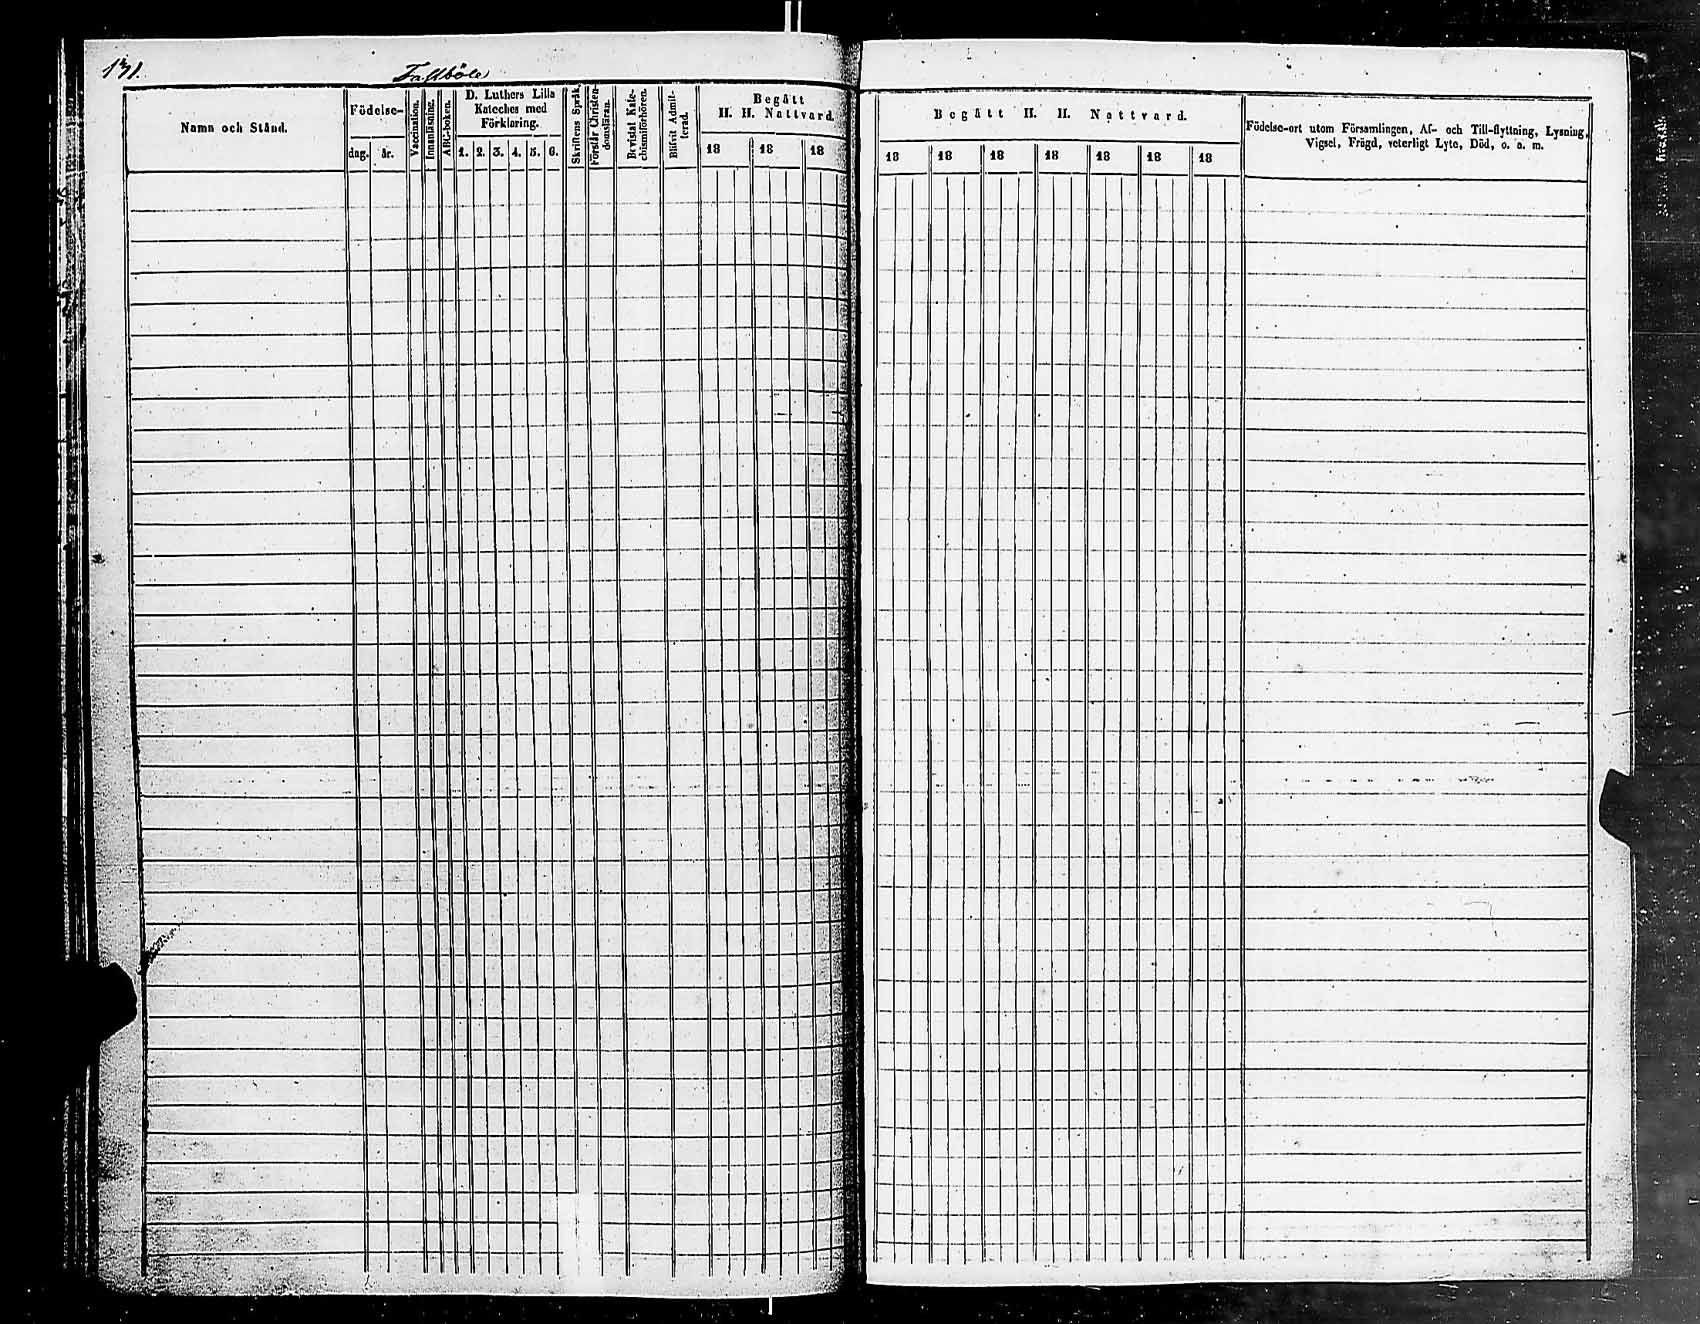 131.
Tallböle
Namn och Stånd.
Födelse-
dag.
år.
Vaccination.
Innanläsning.
ABC-boken.
D. Luthers Lilla
Kateches med
Förklaring.
1. 2. 3. 4. 5. 6.
Skriftens Språk.
Förstår Christen-
domsläran.
Bevistat Kate-
chismiförhören.
Blifvit Admit-
terad.
Begått
H. H. Nattvard.
18 18 18
Begått H. H. Nattvard.
18 18 18 18 18 18 18
Födelse-ort utom Församlingen, Af- och Till-flyttning, Lysning,
Vigsel, Frägd, veterligt Lyte, Död, o. a. m.